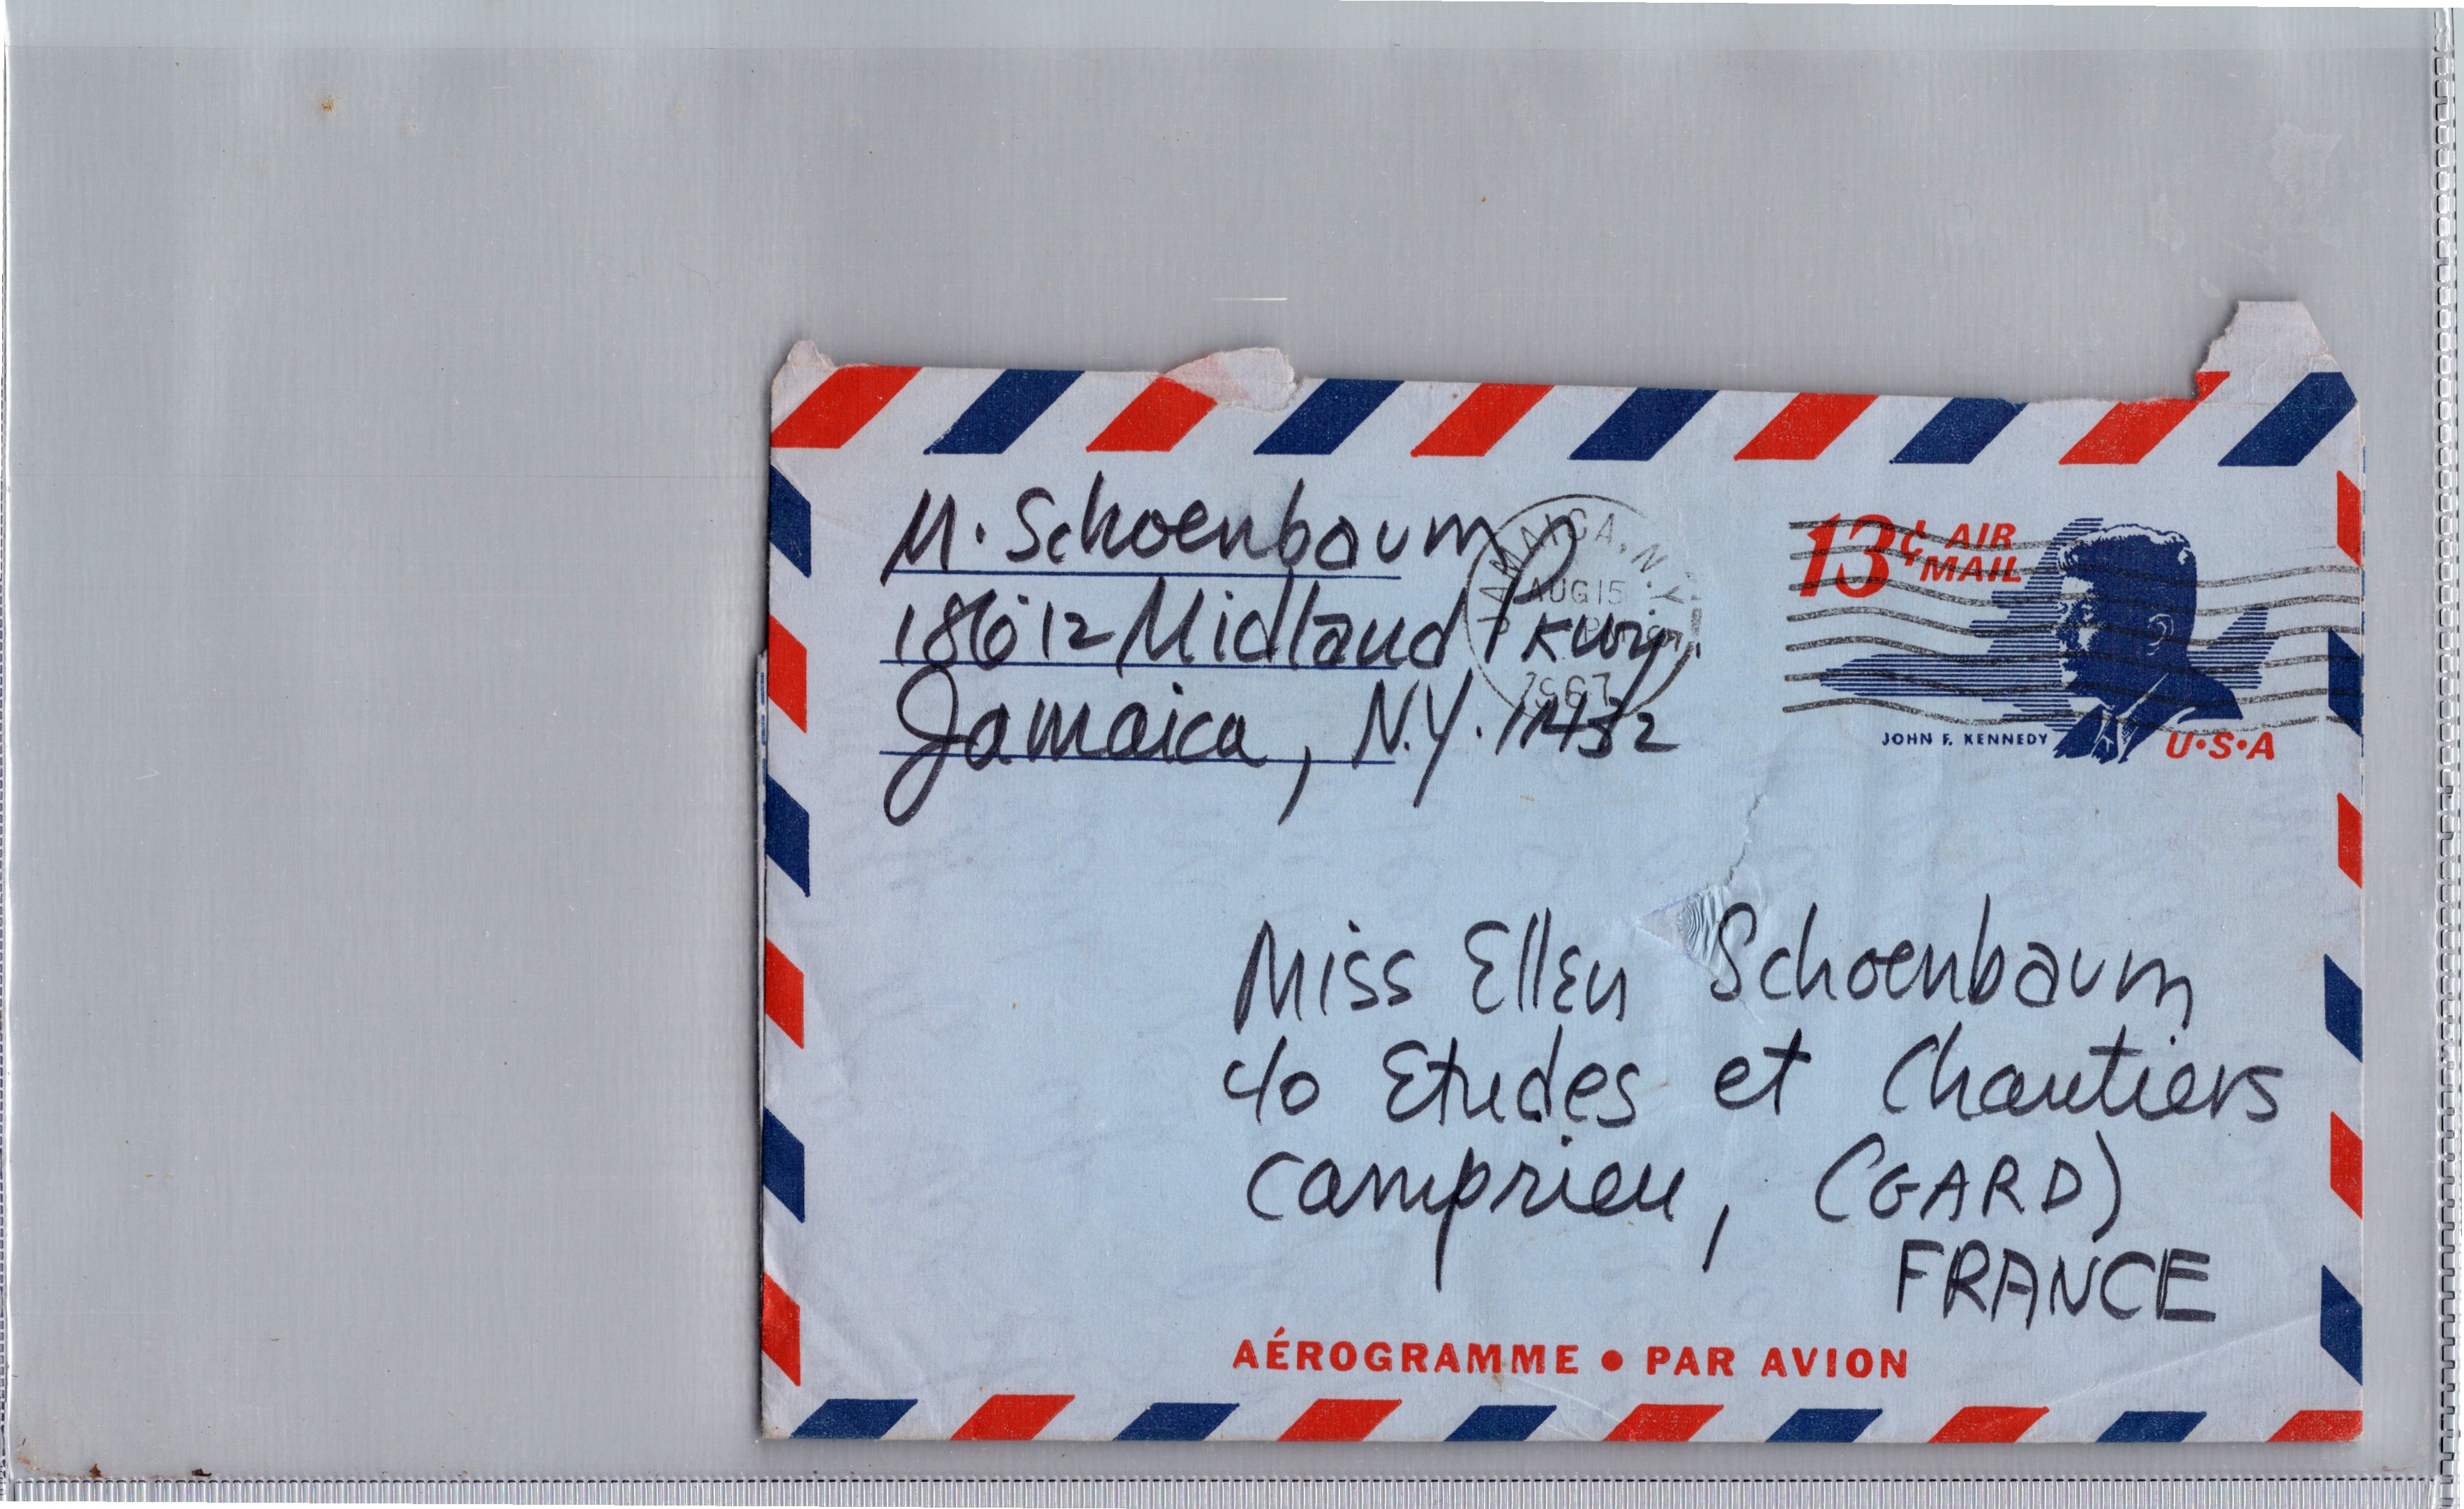 M. Schoenbaum
186-12 Midland Pkwy.
Jamaica, N.Y. 11432
JAMAICA, N.Y.
AUG 15
PM
1967
13¢ AIR
MAIL
JOHN F. KENNEDY
U·S·A
Miss Ellen Schoenbaum
c/o Etudes et Chantiers
Camprieu, (GARD)
FRANCE
AÉROGRAMME • PAR AVION